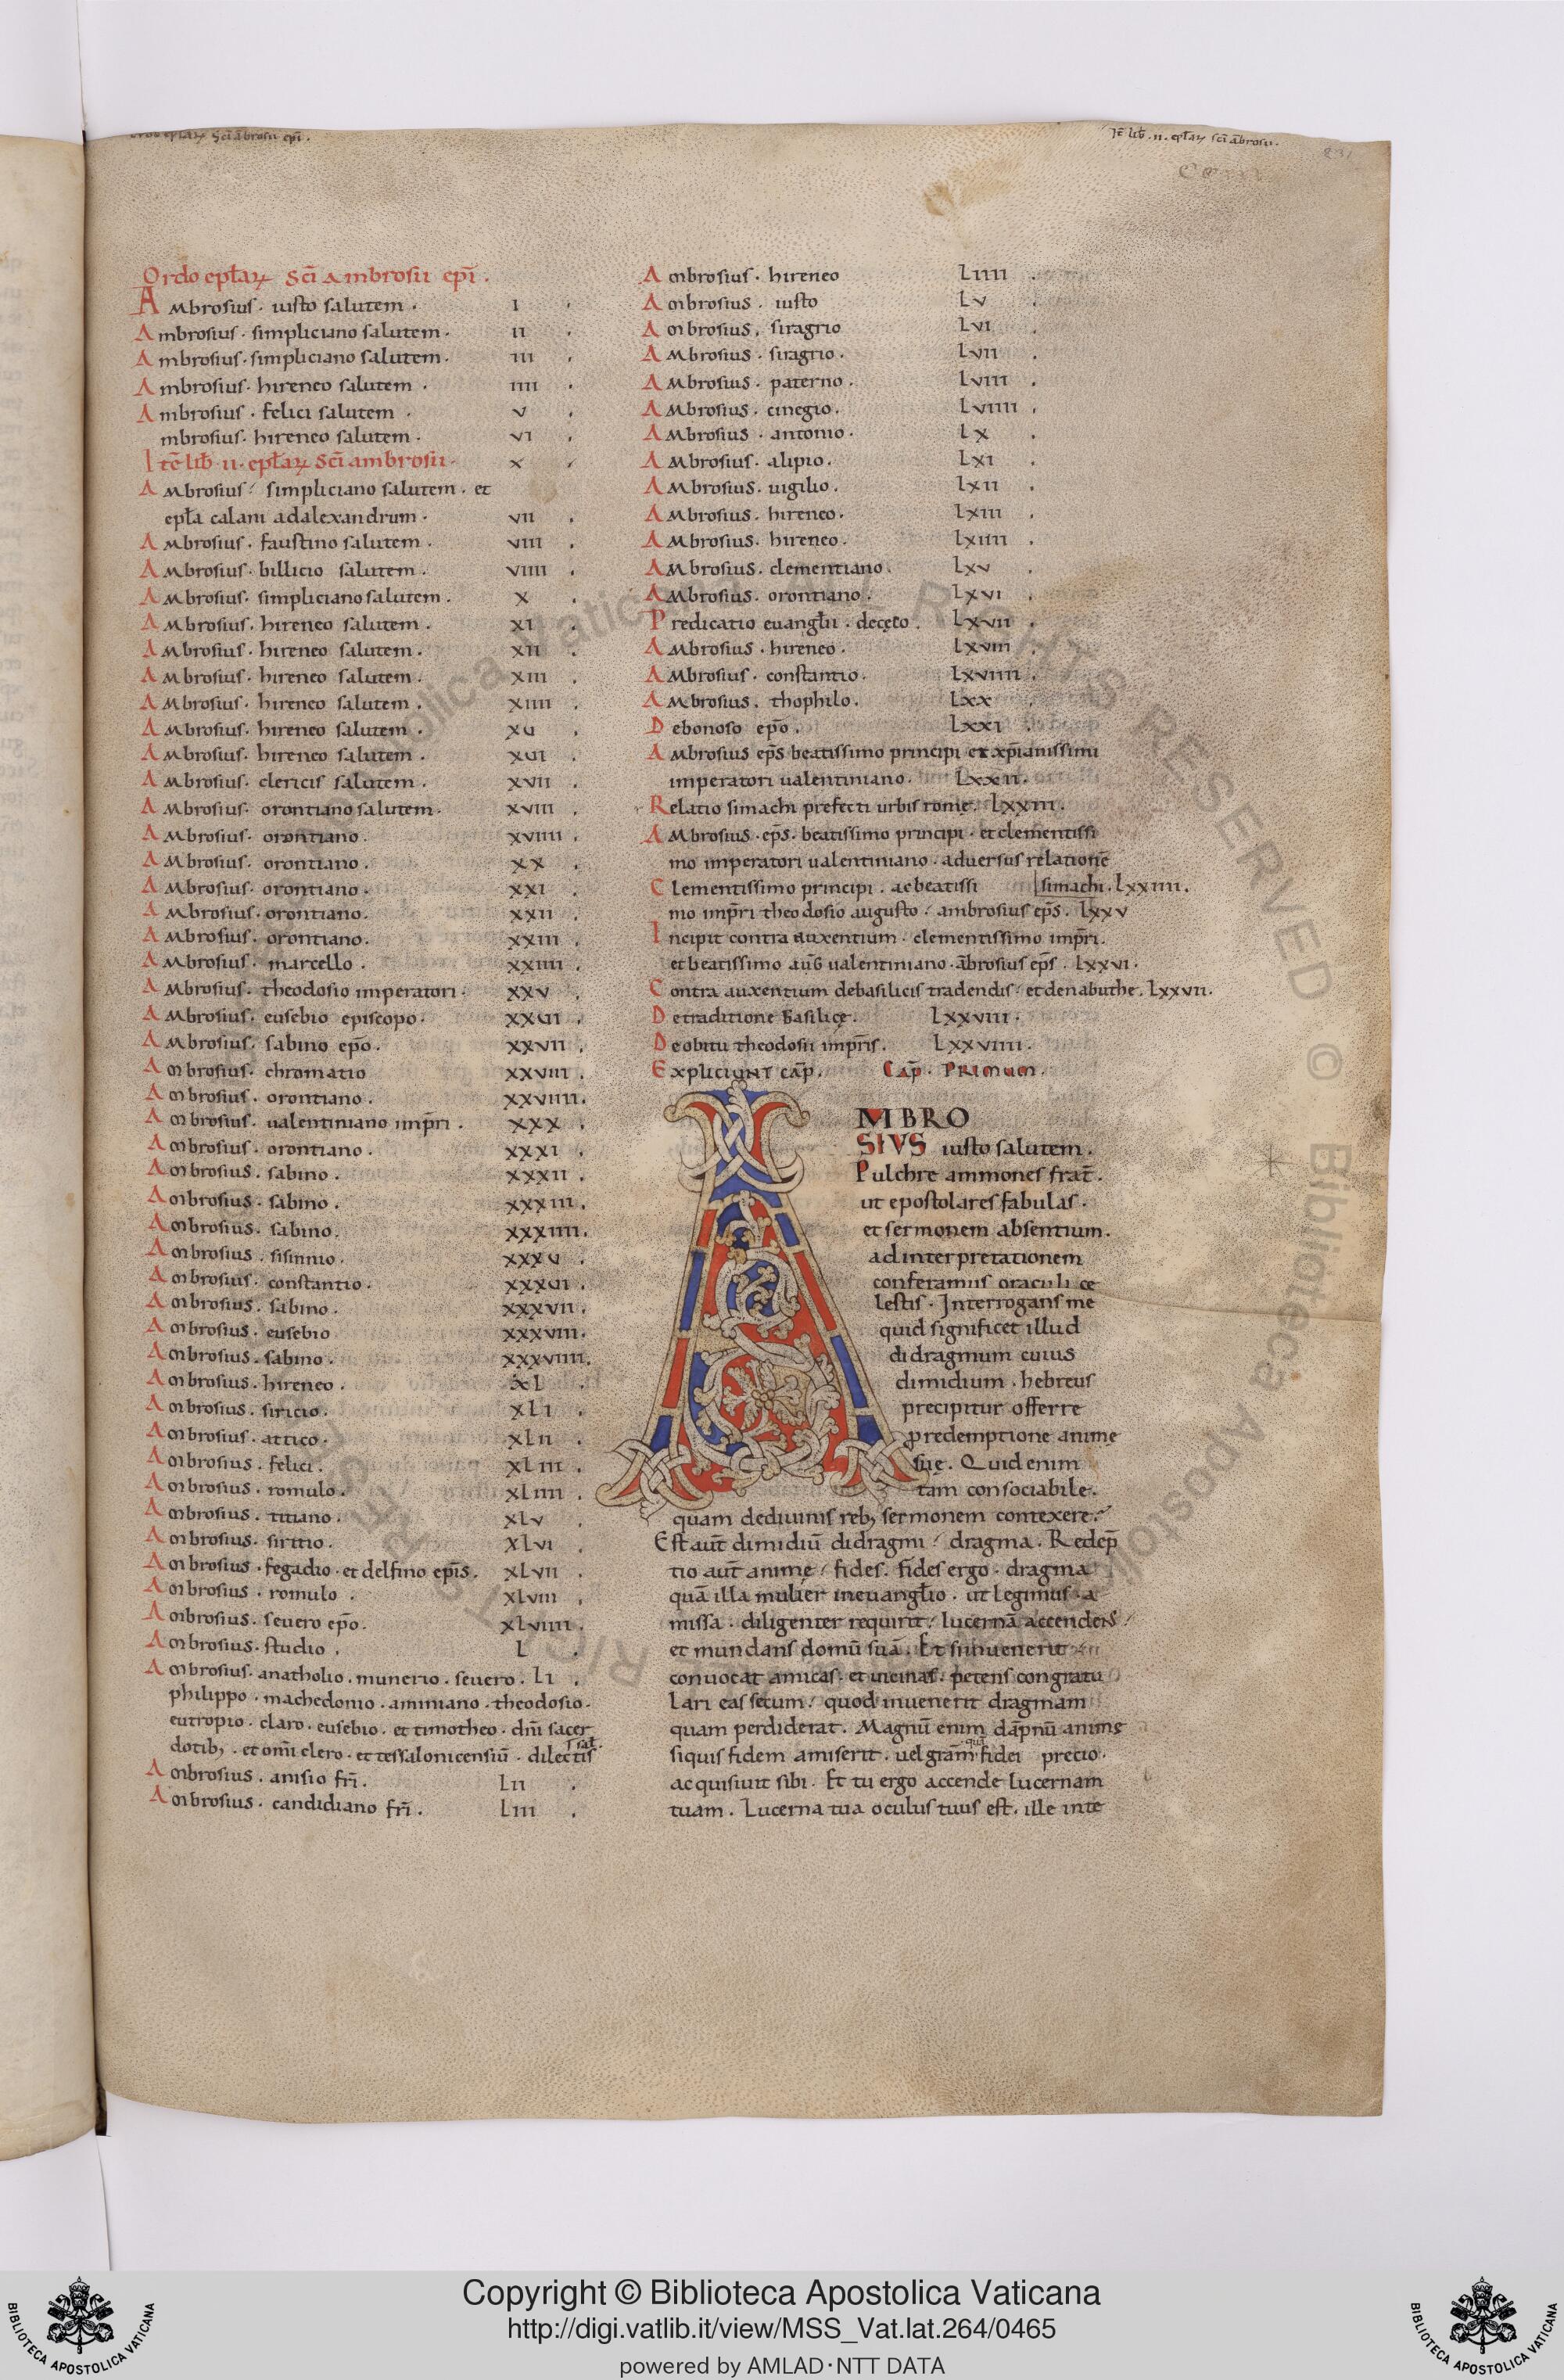 Ordo epłaꝝ Sc̄i Ambrosii ep̄i.
Ambrosius. iusto salutem. I
Ambrosius. simpliciano salutem. II
Ambrosius. simpliciano salutem. III
Ambrosius. hireneo salutem. IIII
Ambrosius. felici salutem. V
mbrosius. hireneo salutem. VI
Itē lib̄ II. epłaꝝ Sc̄i ambrosii. X
Ambrosius simpliciano salutem. et
epła calani ad alexandrum. VII
Ambrosius. faustino salutem. VIII
Ambrosius. billicio salutem. VIIII
Ambrosius. simpliciano salutem. X
Ambrosius. hireneo salutem. XI
Ambrosius. hireneo salutem. XII
Ambrosius. hireneo salutem. XIII
Ambrosius. hireneo salutem. XIIII
Ambrosius. hireneo salutem. XU
Ambrosius. hireneo salutem. XUI
Ambrosius. clericis salutem. XVII
Ambrosius. orontiano salutem. XVIII
Ambrosius. orontiano. XVIIII
Ambrosius. orontiano. XX
Ambrosius. orontiano. XXI
Ambrosius. orontiano. XXII
Ambrosius. orontiano. XXIII
Ambrosius. marcello. XXIIII
Ambrosius. theodosio imperatori. XXV
Ambrosius. eusebio episcopo. XXUI
Ambrosius. sabino ep̄o. XXVII
Ambrosius. chromatio XXVIII
Ambrosius. orontiano. XXVIIII
Ambrosius. ualentiniano imp̄ri. XXX
Ambrosius. orontiano. XXXI
Ambrosius. sabino. XXXII
Ambrosius. sabino. XXXIII
Ambrosius. sabino. XXXIIII
Ambrosius. sisinnio. XXXU
Ambrosius. constantio. XXXUI
Ambrosius. sabino. XXXVII
Ambrosius. eusebio XXXVIII
Ambrosius. sabino. XXXVIIII
Ambrosius. hireneo. XL
Ambrosius. siricio. XLI
Ambrosius. attico. XLII
Ambrosius. felici. XLIII
Ambrosius. romulo. XLIIII
Ambrosius. titiano. XLV
Ambrosius. siritio. XLVI
Ambrosius. segadio. et delfino ep̄is. XLVII
Ambrosius. romulo. XLVIII
Ambrosius. seuero ep̄o. XLVIIII
Ambrosius. studio. L
Ambrosius. anatholio. munerio. seuero. LI
philippo. machedonio. ammiano. theodosio.
eutropio. claro. eusebio. et timotheo. dn̄i sacer
dotib; . et om̄i clero. et tessalonicensiū. dilectis sal̄.
Ambrosius. anisio fr̄i. LII
Ambrosius. candidiano fr̄i. LIII
Ambrosius. hireneo LIIII
Ambrosius. iusto LV
Ambrosius. siragrio LVI
Ambrosius. siragrio. LVII
Ambrosius. paterno. LVIII
Ambrosius. cinegio. LVIIII
Ambrosius. antonio. LX
Ambrosius. alipio. LXI
Ambrosius. uigilio. LXII
Ambrosius. hireneo. LXIII
Ambrosius. hireneo. LXIIII
Ambrosius. clementiano. LXV
Ambrosius. orontiano. LXVI
Predicatio euangłii. LXVII
Ambrosius. hireneo. LXVIII
Ambrosius. constantio. LXVIIII
Ambrosius. thophilo. LXX
De bonoso ep̄o. LXXI
Ambrosius ep̄s beatissimo principi et xp̄ianissimi
imperatori ualentiniano. LXXII.
Relatio simachi prefecti urbis romę. LXXIII.
Ambrosius. ep̄s. beatissimo principi. et clementissi
mo imperatori ualentiniano. aduersus relationē
simachi. LXXIIII.
Clementissimo principi. ac beatissi
mo imp̄ri theodosio augusto. ambrosius ep̄s. LXXV
Incipit contra auxentium. clementissimo imp̄ri.
et beatissimo aug̅ ualentiniano. ābrosius ep̄s. LXXVI.
Contra auxentium de basilicis tradendis. et de nabuthe. LXXVII.
De traditione Basilicę. LXXVIII.
De obitu theodosii imp̄ris. LXXVIIII.
Expliciunt cap̄. Cap̄. Primum.
AMBRO
SIVS iusto salutem.
Pulchre ammones frat̄.
ut epostolares fabulas.
et sermonem absentium.
ad interpretationem
conferamus oraculi cę
lestis. Interrogans me
quid significet illud
didragmum cuius
dimidium. hebreus
precipitur offerre
predemptione animę
suę. Quid enim
tam consociabile.
quam de diuinis reb; sermonem contexere.
Est aut̄ dimidiū didragmi dragma. Redēp̄
tio aut̄ animę fides. fides ergo dragma
quā illa mulier in euangłio. ut legimus. a
missa. diligenter requirit. lucernā accendens
et mundans domū suā. Et si inuenerit
conuocat amicas. et uicinas. petens congratu
lari eas secum. quod inuenerit dragmam
quam perdiderat. Magnū enim dāpnū animę
siquis fidem amiserit. uel grām fidei precio.
acquisiuit sibi. Et tu ergo accende lucernam
tuam. Lucerna tua oculus tuus est. ille inte
Copyright © Biblioteca Apostolica Vaticana
http://digi.vatlib.it/view/MSS_Vat.lat.264/0465
powered by AMLAD・NTT DATA
BIBLIOTECA APOSTOLICA VATICANA
BIBLIOTECA APOSTOLICA VATICANA